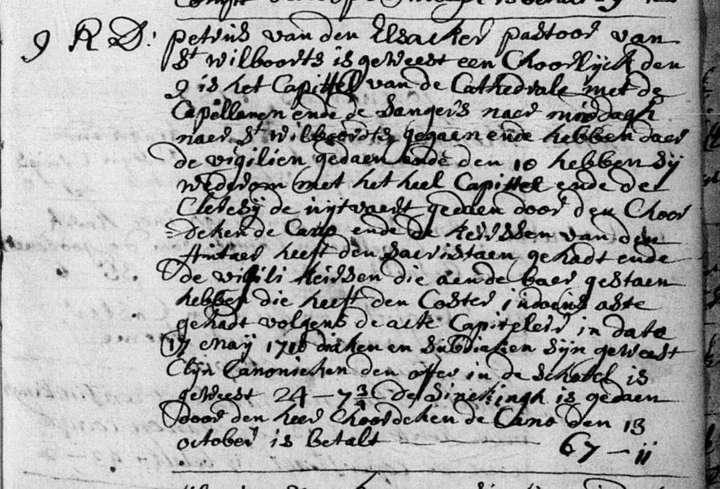 9 R D: petrus van den Elsacker pastoor van
St wilboorts is geweest een Choorlyck den
9 is het Capittel van de Cathedrale met de
Capellanen ende de Sangers naer middagh
naer St wilboordts gegaen ende hebben daer
de vigilien gedaen ende den 10 hebben sy
wederom met het heel Capittel ende de
Cleresy de uytvaert gedaen door den Choor
deken de Cano ende de keerssen van den
Autaer heeft den sacristaen gehadt ende
de vigili keirssen die aende baer gestaen
hebben die heeft den Coster
gehadt volgens de acte Capiteler in date
17 may 1718 diaken en subdiaken syn geweest
Canonicken den offer in de schotel is
geweest 24 - 7 3/4 de sinckingh is gedaen
door den heer Choordeken de Cano den 13
october is betalt 67 - ii